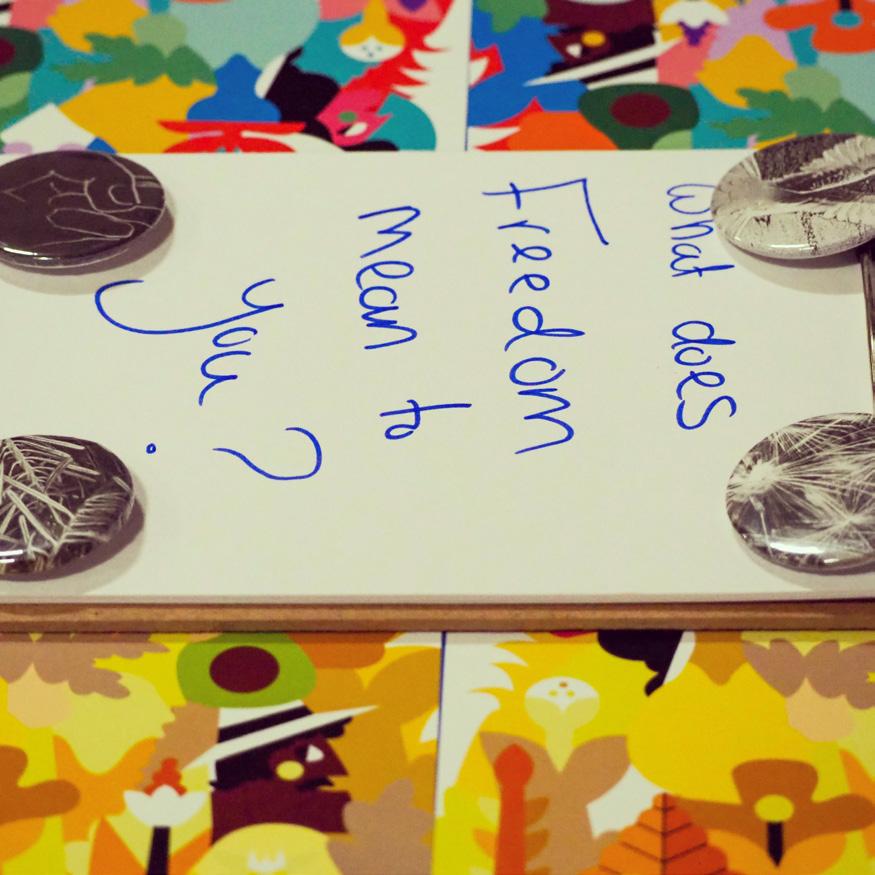 What does
Freedom
mean to
you?